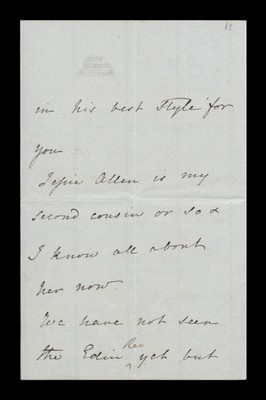 in his best style for
you
Jessie Allen is my
second cousin or so &
I know all about
her now.
We have not seen
the Edin Rev yet but